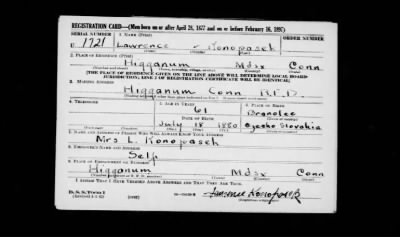 REGISTRATION CARD—(Men born on or after April 28, 1877 and on or before February 16, 1897)
SERIAL NUMBER 1. NAME (Print) ORDER NUMBER
U 1721 Lawrence - Konopasek
2. PLACE OF RESIDENCE (Print)
Higganum Mdsx Conn
[THE PLACE OF RESIDENCE GIVEN ON THE LINE ABOVE WILL DETERMINE LOCAL BOARD
JURISDICTION; LINE 2 OF REGISTRATION CERTIFICATE WILL BE IDENTICAL]
3. MAILING ADDRESS
Higganum Conn R.F.D.
4. TELEPHONE 5. AGE IN YEARS 6. PLACE OF BIRTH
61
DATE OF BIRTH
July 18 1880 Czecho Slovakia
7. NAME AND ADDRESS OF PERSON WHO WILL ALWAYS KNOW YOUR ADDRESS
Mrs L. Konopasek
8. EMPLOYER'S NAME AND ADDRESS
Self
9. PLACE OF EMPLOYMENT OR BUSINESS
Higganum Mdsx Conn
I AFFIRM THAT I HAVE VERIFIED ABOVE ANSWERS AND THAT THEY ARE TRUE.
D. S. S. Form 1
Lawrence Konopasek